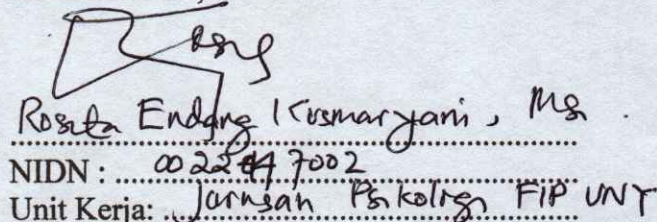 Rosita Endang Kusmaryani, M.Si.
NIDN : 0022047002
Unit Kerja: Jurusan Psikologi FIP UNY